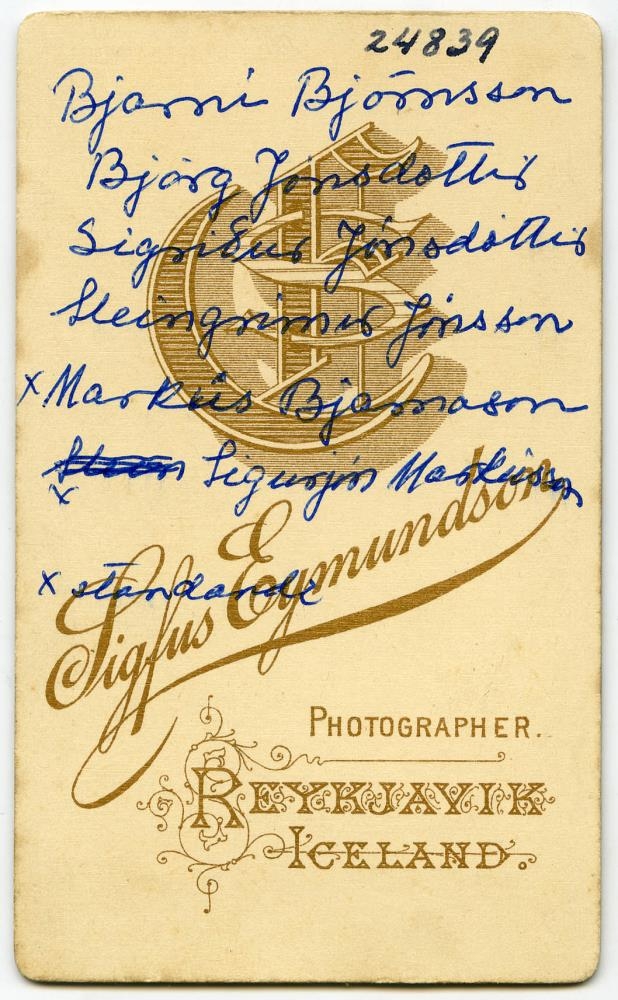 24839
Bjarni Björnsson
Björg Jónsdóttir
Sigríður Jónsdóttir
Steingrímur Jónsson
x Markús Bjarnason
x Sigurjón Markússon
x standandi
Sigfus Eymundson
PHOTOGRAPHER.
REYKJAVIK
ICELAND.